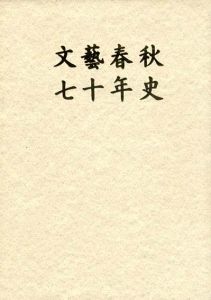 文藝春秋
七十年史